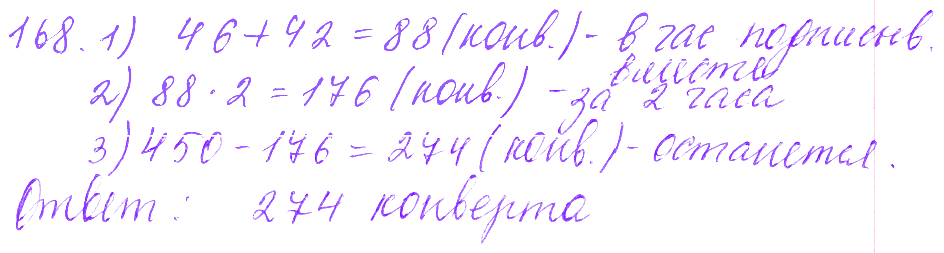 168. 1) 46+42=88(конв.)- в час подписыв.
вместе
2) 88·2=176(конв.) - за 2 часа
3) 450-176=274(конв.)- останется.
Ответ: 274 конверта